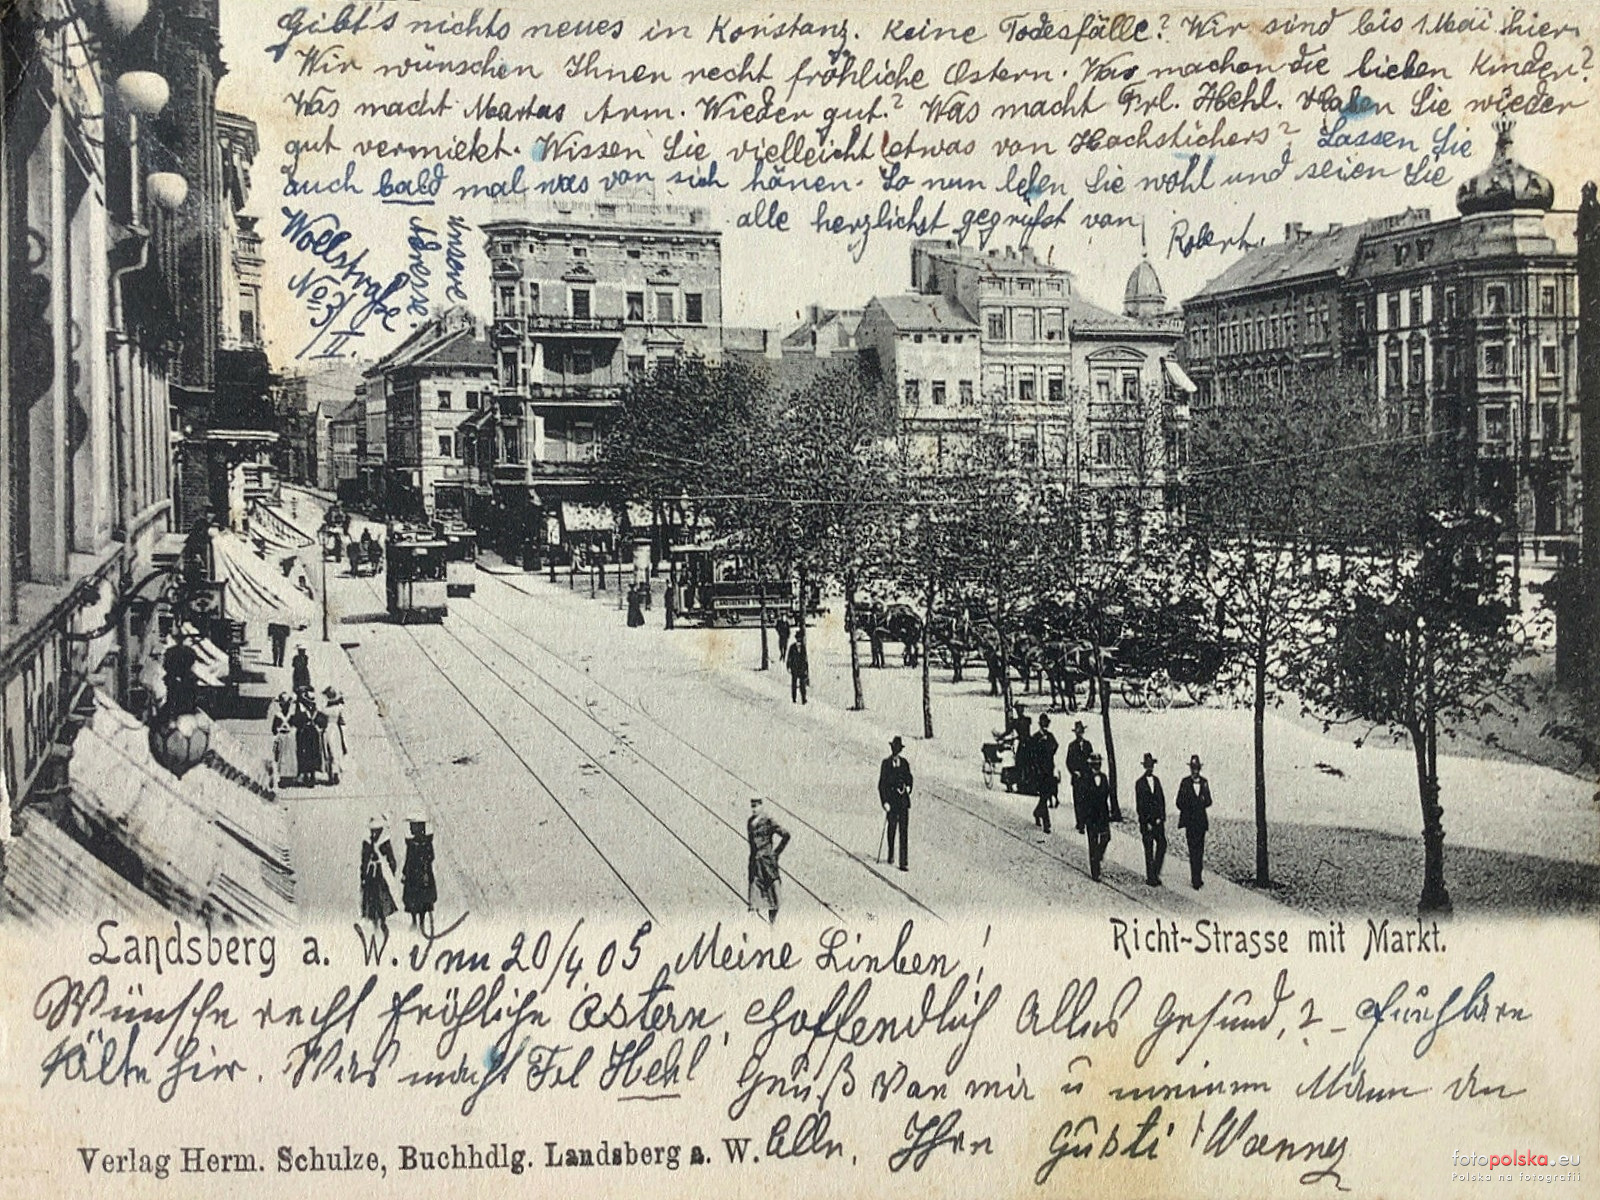 Gibt's nichts neues in Konstanz. Keine Todesfälle? Wir sind bis 1 Mai hier.
Wir wünschen Ihnen recht fröhliche Ostern. Was machen die lieben Kinder?
Was macht Martas Arm. Wieder gut? Was macht Frl. Hehl. Haben Sie wieder
gut vermietet. Wissen Sie vielleicht etwas von Hochstichers? Lassen Sie
auch bald mal was von sich hören. So nun leben Sie wohl und seien Sie
alle herzlichst gegrüsst von Robert.
Wollstraße
No 3/II.
unsere
Adresse.
Landsberg a. W. den 20/4 05 Meine Lieben!
Richt-Strasse mit Markt.
Wünsche recht fröhliche Ostern, Hoffendlich Alles Gesund,? – Furchtbare
Kälte hier. Was macht Frl Hehl Gruß von mir u meinem Mann an
Alle. Ihre Gusti
Verlag Herm. Schulze, Buchhdlg. Landsberg a. W.
fotopolska.eu
Polska na fotografii